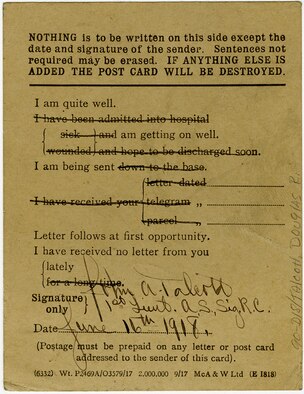 NOTHING is to be written on this side except the
date and signature of the sender. Sentences not
required may be erased. IF ANYTHING ELSE IS
ADDED THE POST CARD WILL BE DESTROYED.
I am quite well.
I have been admitted into hospital
sick and am getting on well.
wounded and hope to be discharged soon.
I am being sent down to the base.
letter dated
I have received your telegram „
parcel „
Letter follows at first opportunity.
I have received no letter from you
lately
for a long time.
Signature only John A. Talcott
1st Lieut. A.S., Sig. R.C.
Date June 16th 1918.
(Postage must be prepaid on any letter or post card
addressed to the sender of this card).
(6332) Wt. P2469A/O3579/17 2,000,000 9/17 McA & W Ltd (E 1818)